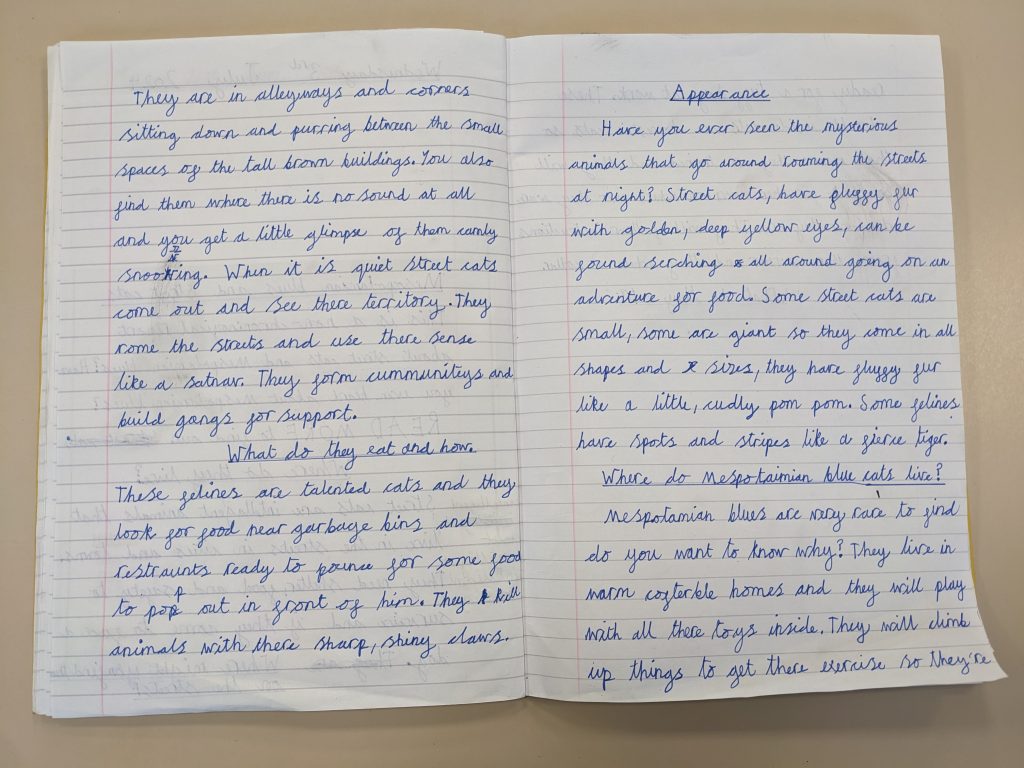 They are in alleyways and corners
sitting down and purring between the small
spaces of the tall brown buildings. You also
find them where there is no sound at all
and you get a little glimpse of them camly
snooring. When it is quiet street cats
come out and see there territory. They
rome the streets and use there sense
like a satnav. They form cummuniteys and
build gangs for support.
What do they eat and how.
These felines are talented cats and they
look for food near garbage bins and
restraunts ready to pounce for some food
to pop out in front of him. They kill
animals with there sharp, shiny claws.
Appearance
Have you ever seen the mysterious
animals that go around roaming the streets
at night? Street cats, have fluggy fur
with golden, deep yellow eyes, can be
found serching all around going on an
adventure for food. Some street cats are
small, some are giant so they come in all
shapes and sizes, they have fluggy fur
like a little, cudly pom pom. Some felines
have spots and stripes like a fierce tiger.
Where do Mespotaimian blue cats live?
Mespotamian blues are very rare to find
do you want to know why? They live in
warm cofterble homes and they will play
with all there toys inside. They will climb
up things to get there exercise so they're